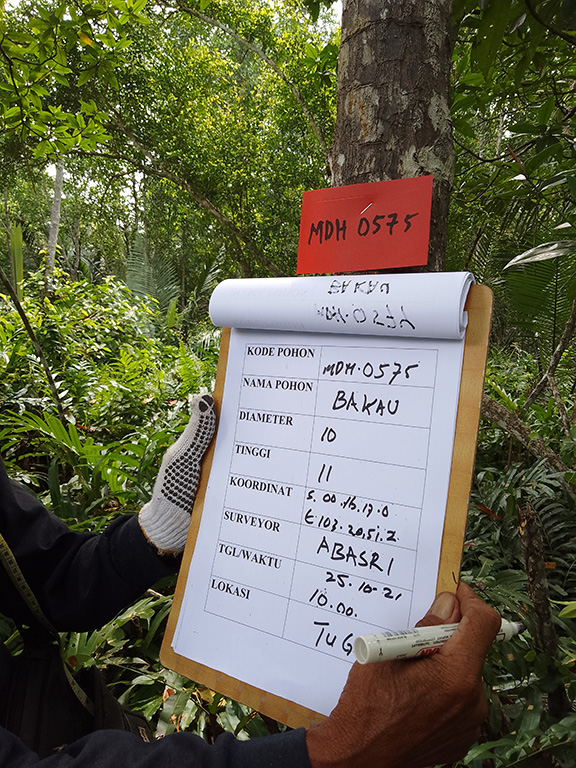 MDH 0575
BAKAU
KODE POHON MDH.0575
NAMA POHON BAKAU
DIAMETER 10
TINGGI 11
KOORDINAT S.00.16.17.0
E 103.20.51.2
SURVEYOR ABASRI
TGL/WAKTU 25.10-21
10.00.
LOKASI TUG